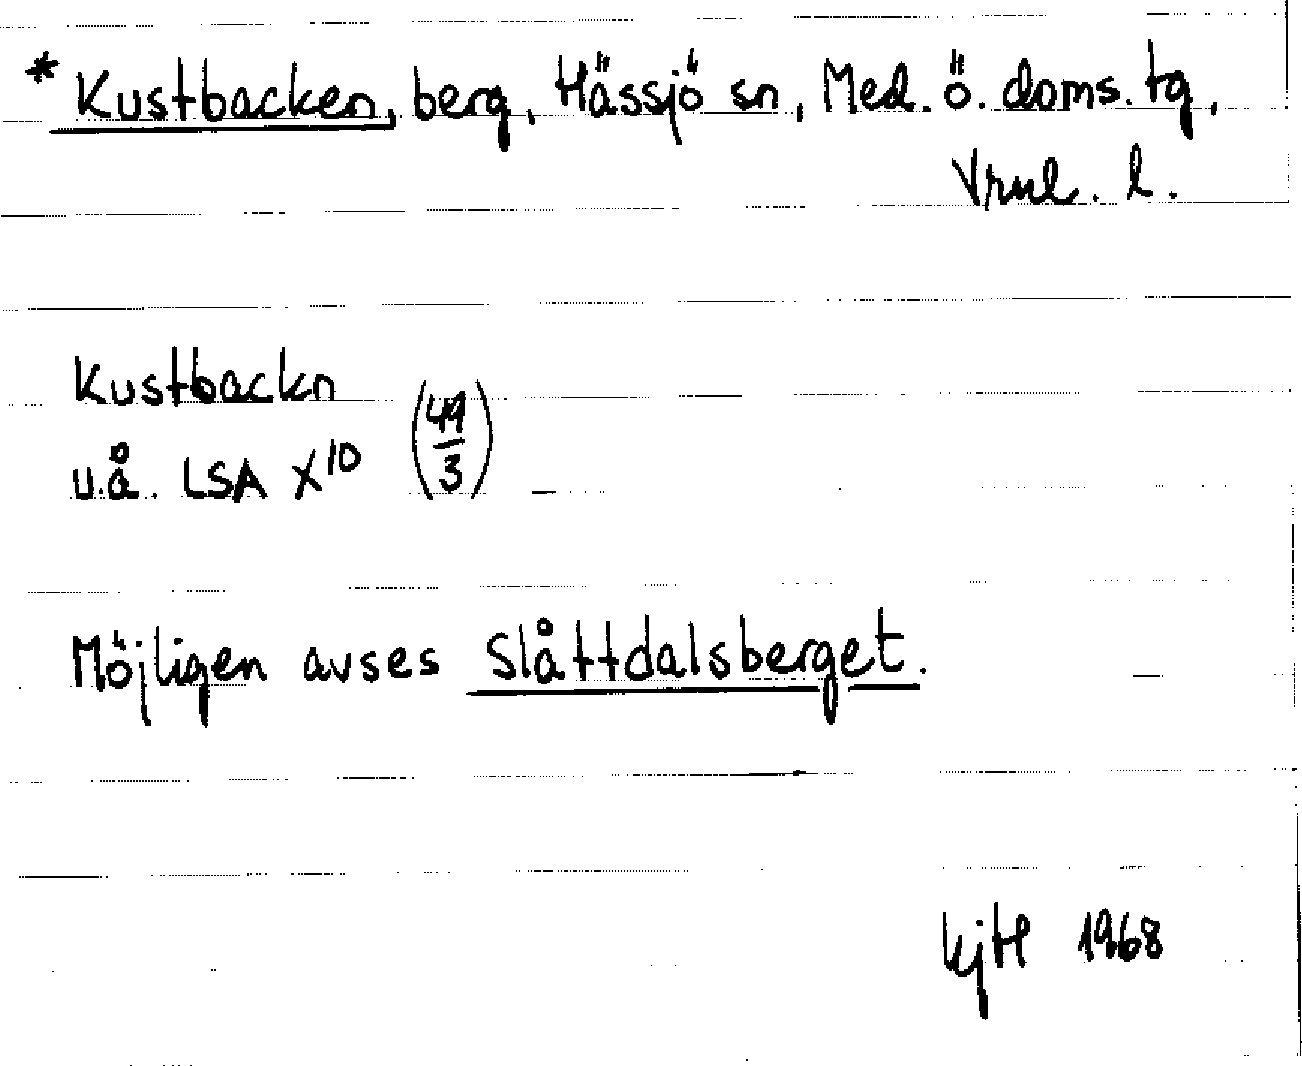 * Kustbacken, berg, Hässjö sn, Med. ö. doms. tg,
Vrnl. l.
Kustbackn
u.å. LSA X10 (49/3)
Möjligen avses Slåttdalsberget.
KjH 1968